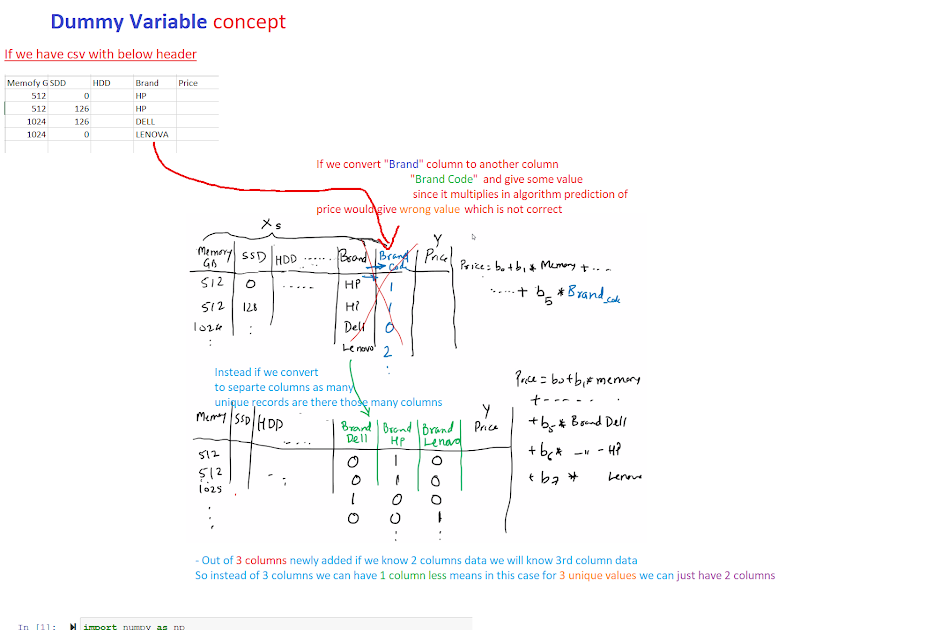 Dummy Variable concept
If we have csv with below header
Memofy G SDD HDD Brand Price
512 0 HP
512 126 HP
1024 126 DELL
1024 0 LENOVA
If we convert "Brand" column to another column
"Brand Code" and give some value
since it multiplies in algorithm prediction of
price would give wrong value which is not correct
Xs
Memory GB SSD HDD ...... Brand Brand Code Y Price
512 0 ..... HP 1
512 128 HP 1
1024 : Dell 0
: Lenovo 2
:
Price = b0 + b1 * Memory + ....
.....+ b5 * Brand_code
Instead if we convert
to separte columns as many
unique records are there those many columns
Memory SSD HDD .... Brand Dell Brand HP Brand Lenovo Y Price
512 0 1 0
512 0 1 0
1025 1 0 0
: 0 0 1
Price = b0 + b1 * memory
+ - - - - -
+ b5 * Brand Dell
+ b6 * —"— HP
+ b7 * Lenovo
- Out of 3 columns newly added if we know 2 columns data we will know 3rd column data
So instead of 3 columns we can have 1 column less means in this case for 3 unique values we can just have 2 columns
In [1]: import numpy as np